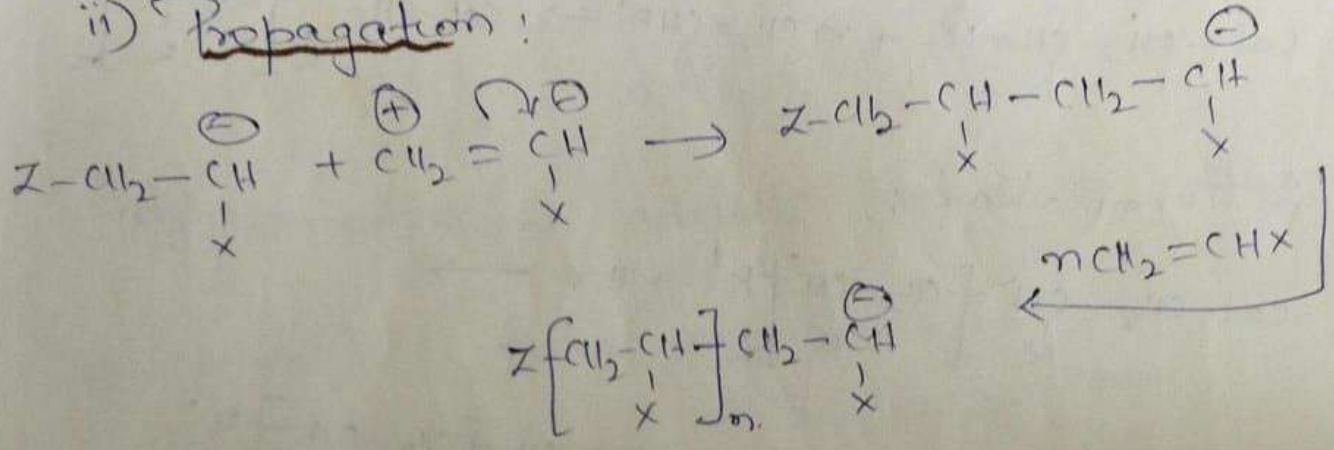 ii) Propagation :
Z-CH₂-CH⊖ + ⊕CH₂=CH⊖ ⟶ Z-CH₂-CH-CH₂-CH⊖
X X X X
nCH₂=CHX
Z[CH₂-CH]ₙCH₂-CH⊖
X X